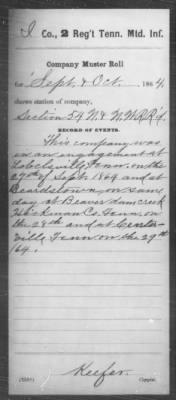 I Co., 2 Reg't Tenn. Mtd. Inf.
Company Muster Roll
for Sept. & Oct., 1864,
shows station of company,
Section 54 N. & N. W. R. R'd.
RECORD OF EVENTS.
This company was
in an engagement at
Lobelsville Tenn. on the
27th of Sept. 1864 and at
Beardstown, on same
day at Beaver dam creek
Hickman Co. Tenn. on
the 28th and at Center-
ville Tenn on the 29th
/64.
Keefer.
Copyist.